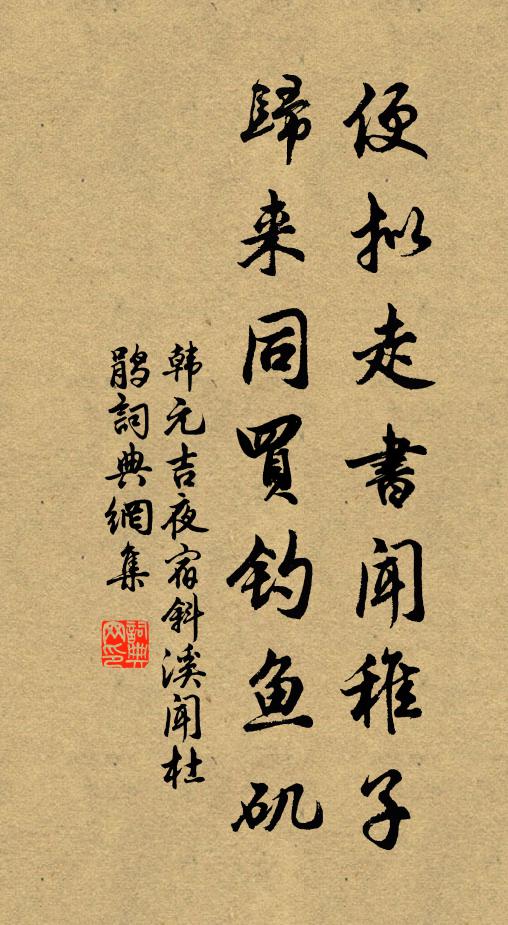 便拟走書闻稚子
歸来同買钓鱼矶
韩元吉夜宿斜溪闻杜
鹃詞典網集
詞典
网印